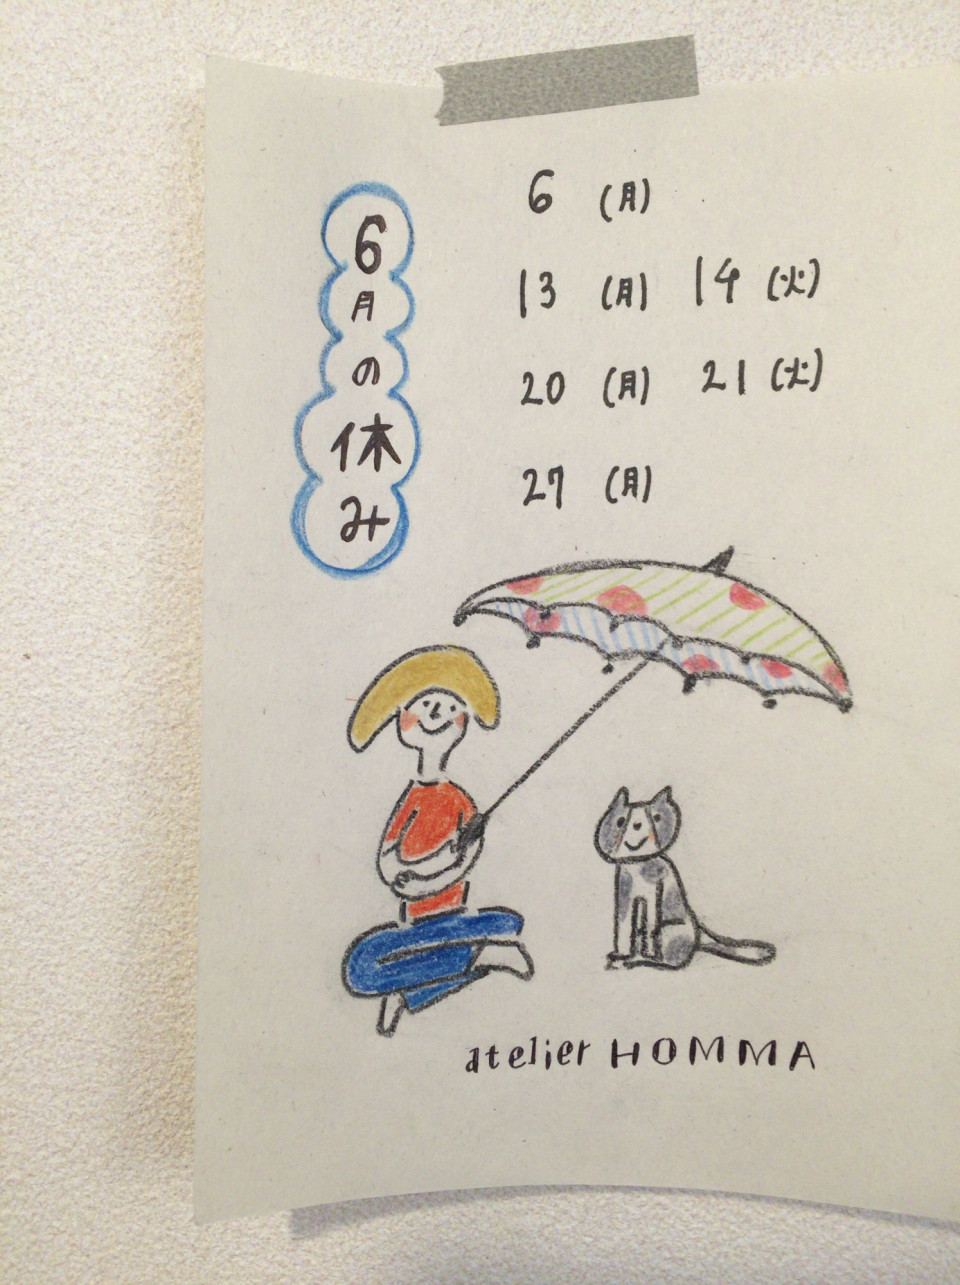 6月の休み
6 (月)
13 (月) 14 (火)
20 (月) 21 (火)
27 (月)
atelier HOMMA